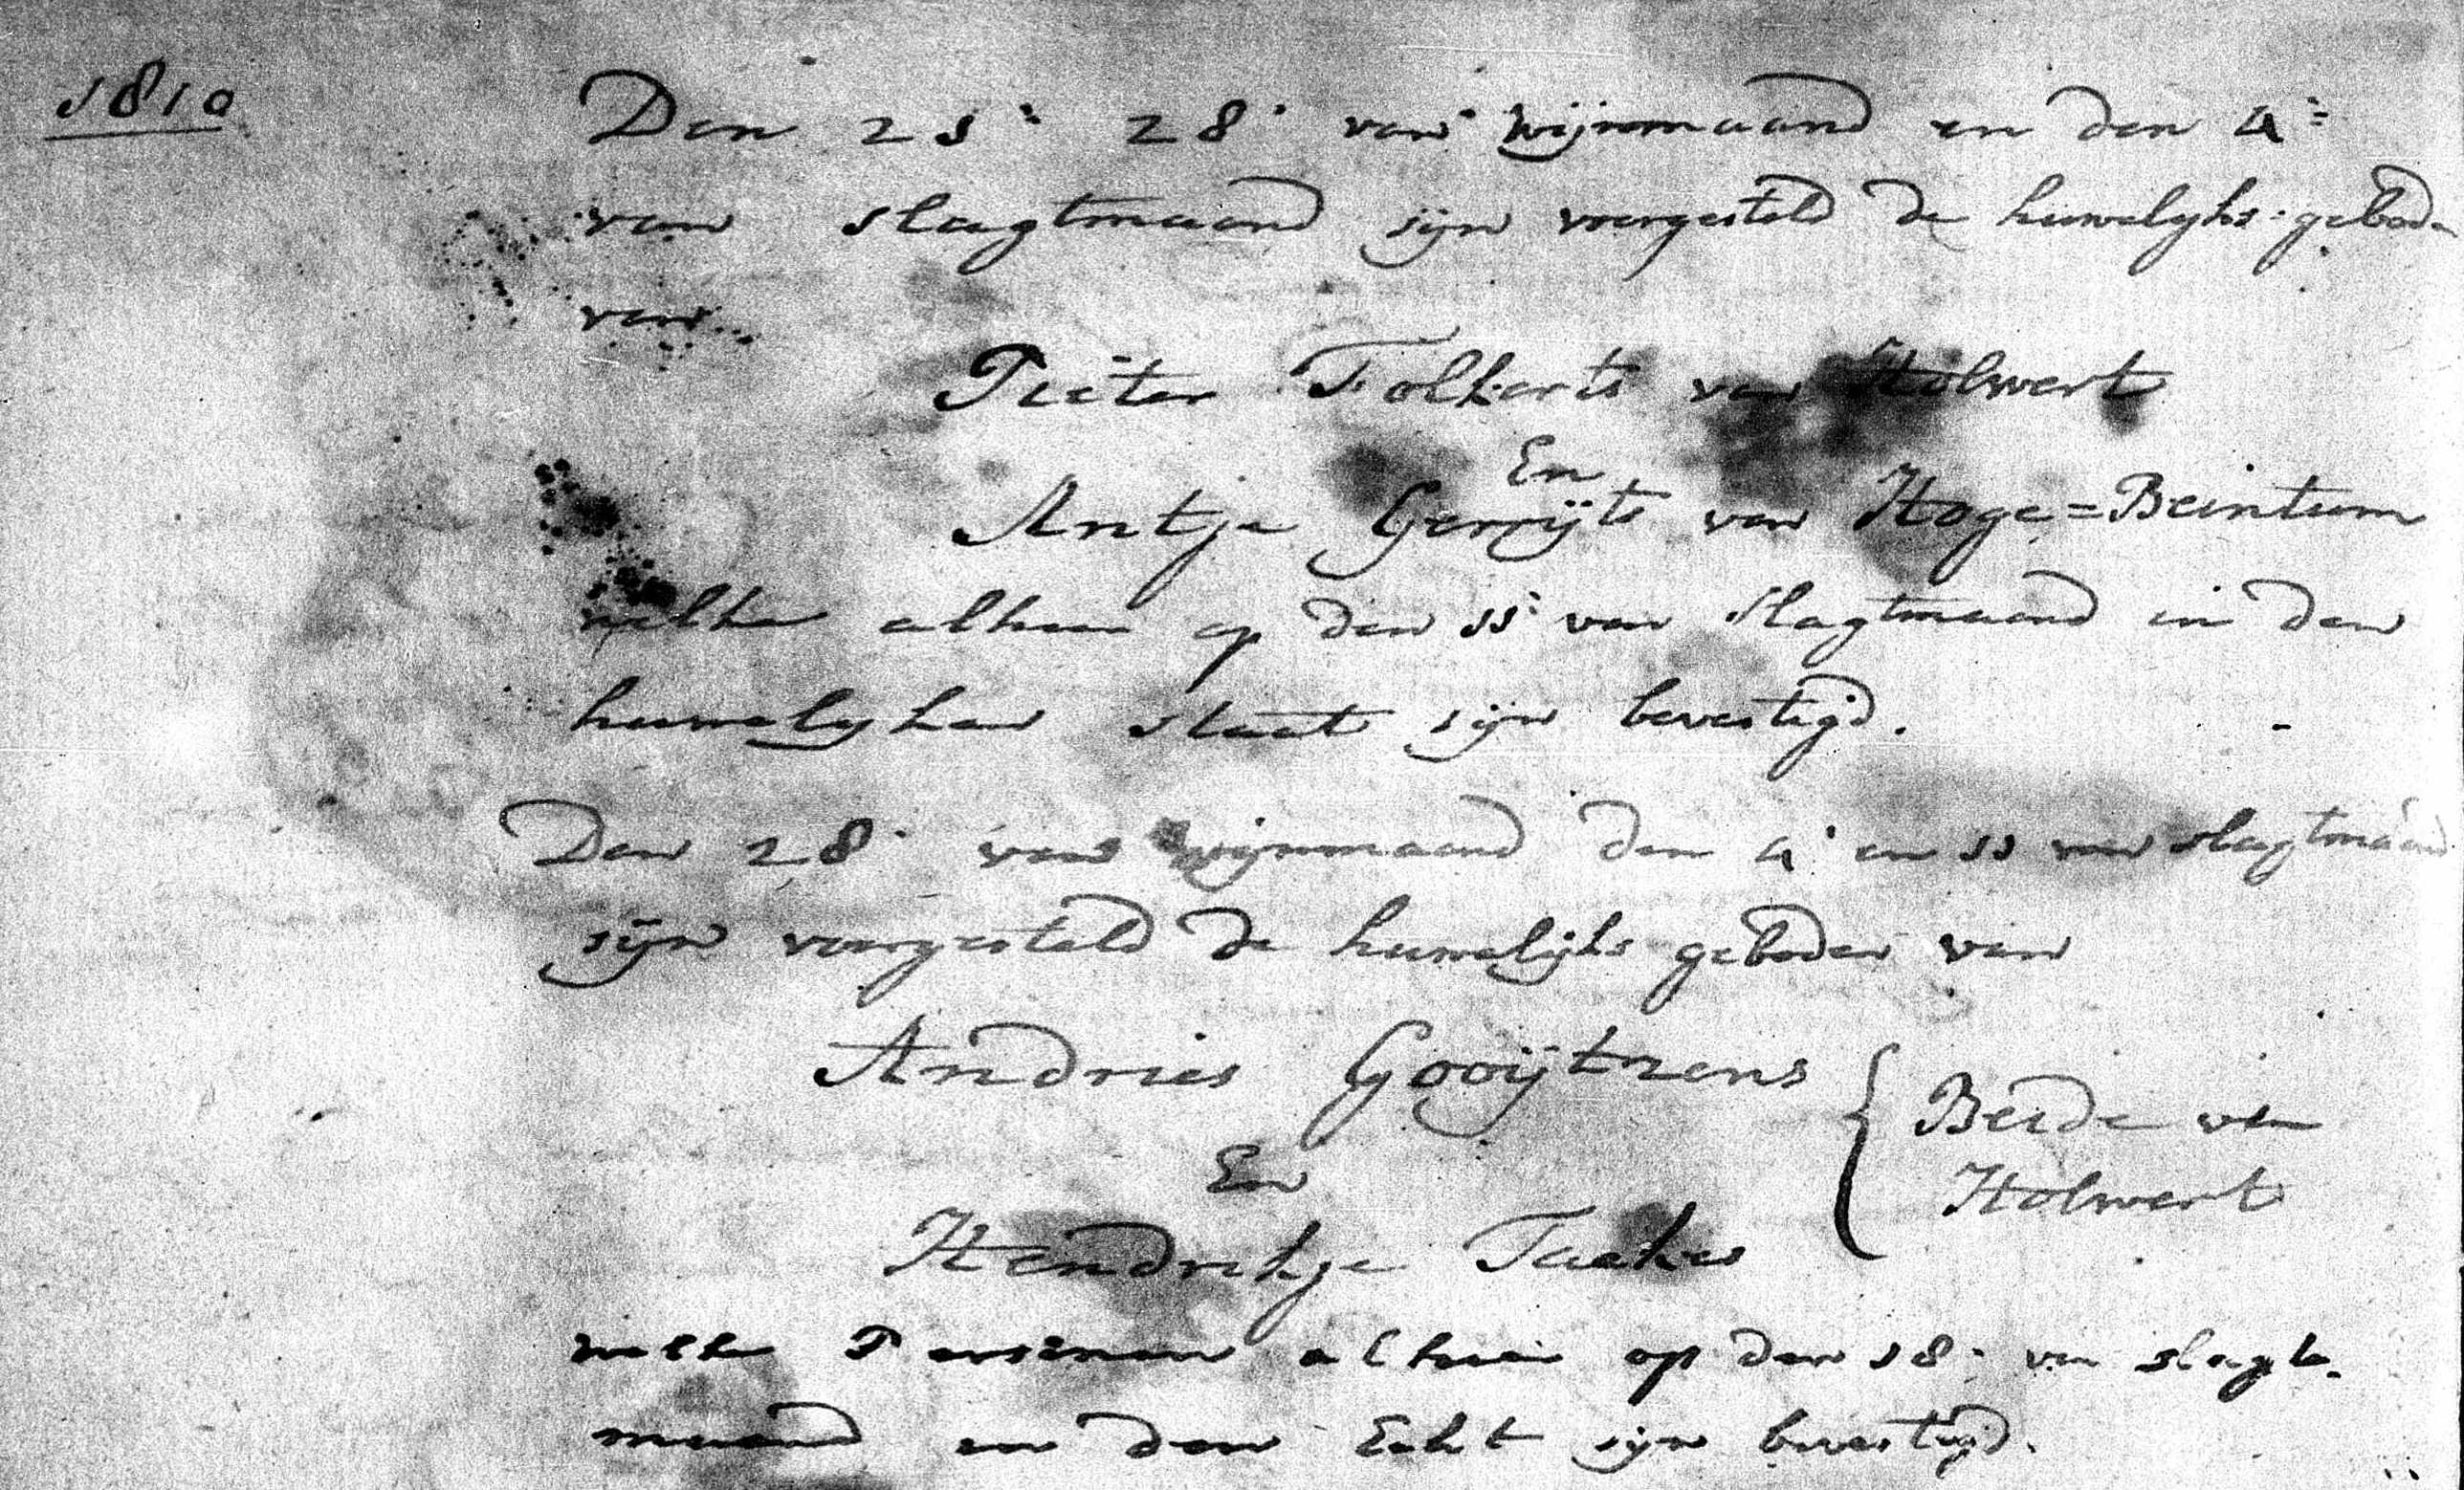 1810
Den 21: 28: van wijnmaand en den 4:
van slagtmaand sijn voorgesteld de huwelyks-geboden
van
Pieter Folkerts van Holwert
En
Antje Gerrijts van Hoge=Beintum
welke alhier op den 11: van Slagtmaand in den
huwelyken staat sijn bevestigd.
Den 28: van wijnmaand den 4: en 11 van slagtmaand
sijn voorgesteld de huwelijks geboden van
Andries Gooijtzens
En
Beide van
Holwert
Hendrikje Taekes
welke Persoonen alhier op den 18: van slagt-
maand in den Echt sijn bevestigd.